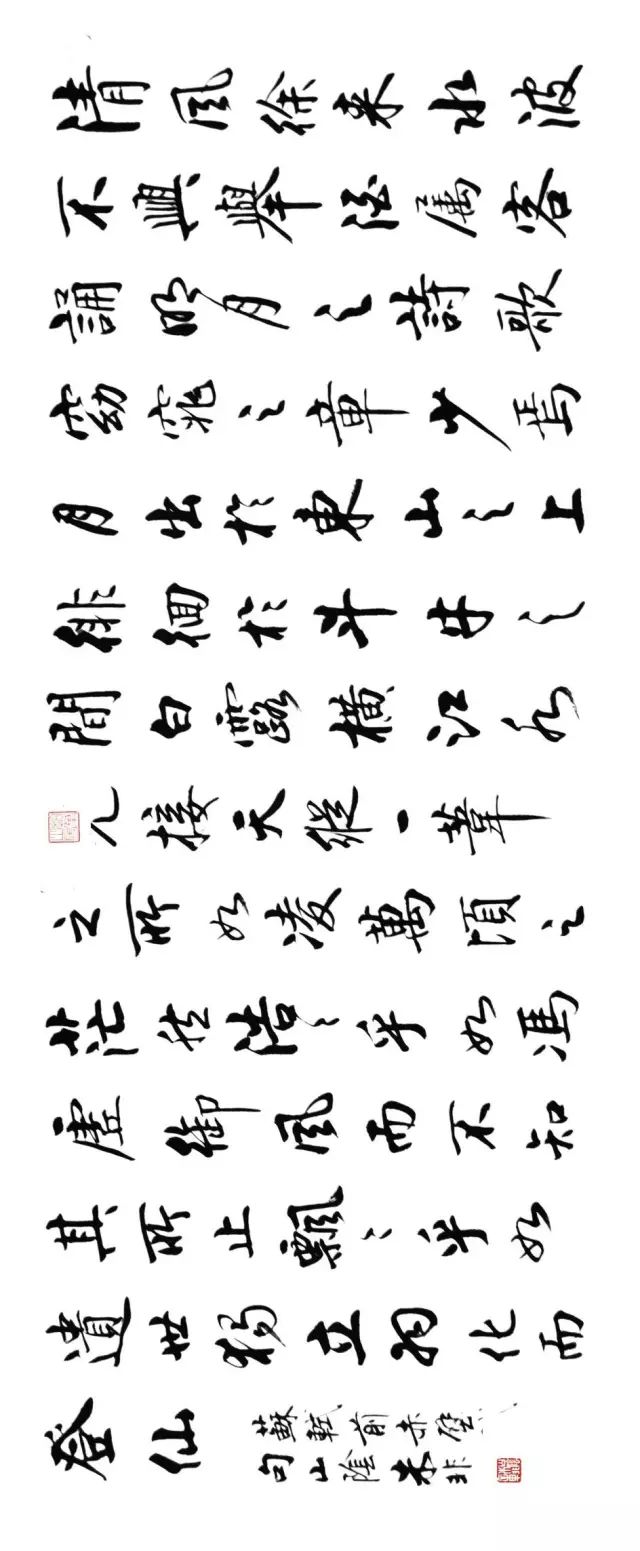 清風徐来水波
不興舉酒属客
誦明月之詩歌
窈窕之章少焉
月出於東山之上
徘徊於斗牛之
間白露橫江水
光接天縱一葦
之所如凌萬頃之
茫然浩〻乎如馮
虛御風而不知
其所止飄〻乎如
遺世獨立羽化而
登仙
蘇軾前赤壁
句山陰朱非